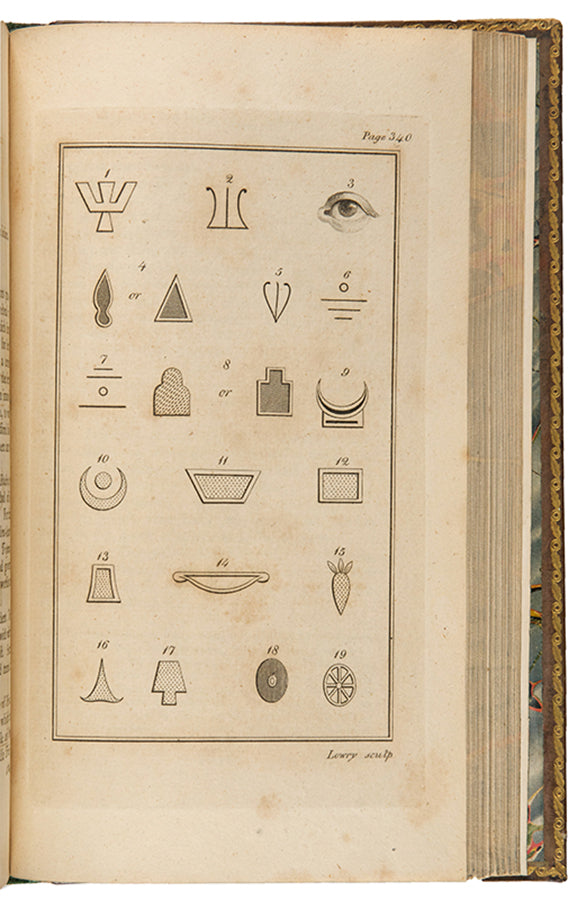 Page 340
1 2 3
4 or 5 6
7 8 or 9
10 11 12
13 14 15
16 17 18 19
Lowry sculp